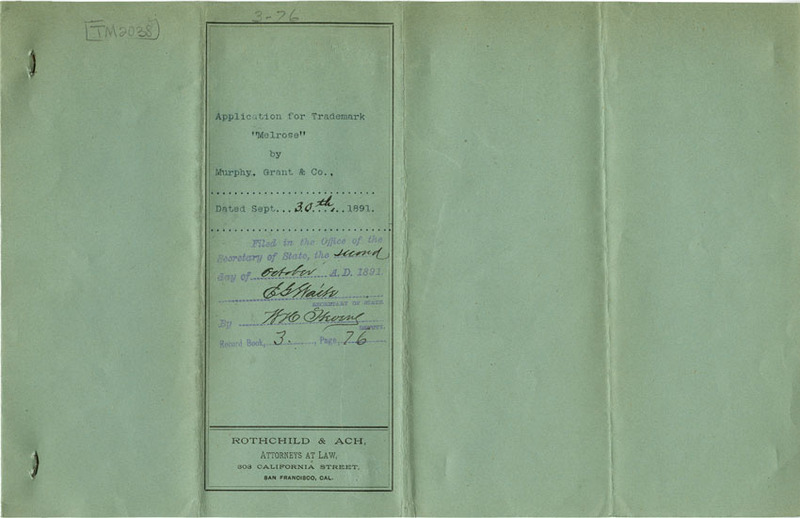 TM2038
3-76
Application for Trademark
"Melrose"
by
Murphy, Grant & Co.,
Dated Sept...30th...1891.
Filed in the Office of the
Secretary of State, the second
day of October A.D. 1891
E G Waite
SECRETARY OF STATE
By W H
DEPUTY.
Record Book, 3. , Page, 76
ROTHCHILD & ACH,
ATTORNEYS AT LAW,
303 CALIFORNIA STREET,
SAN FRANCISCO, CAL.